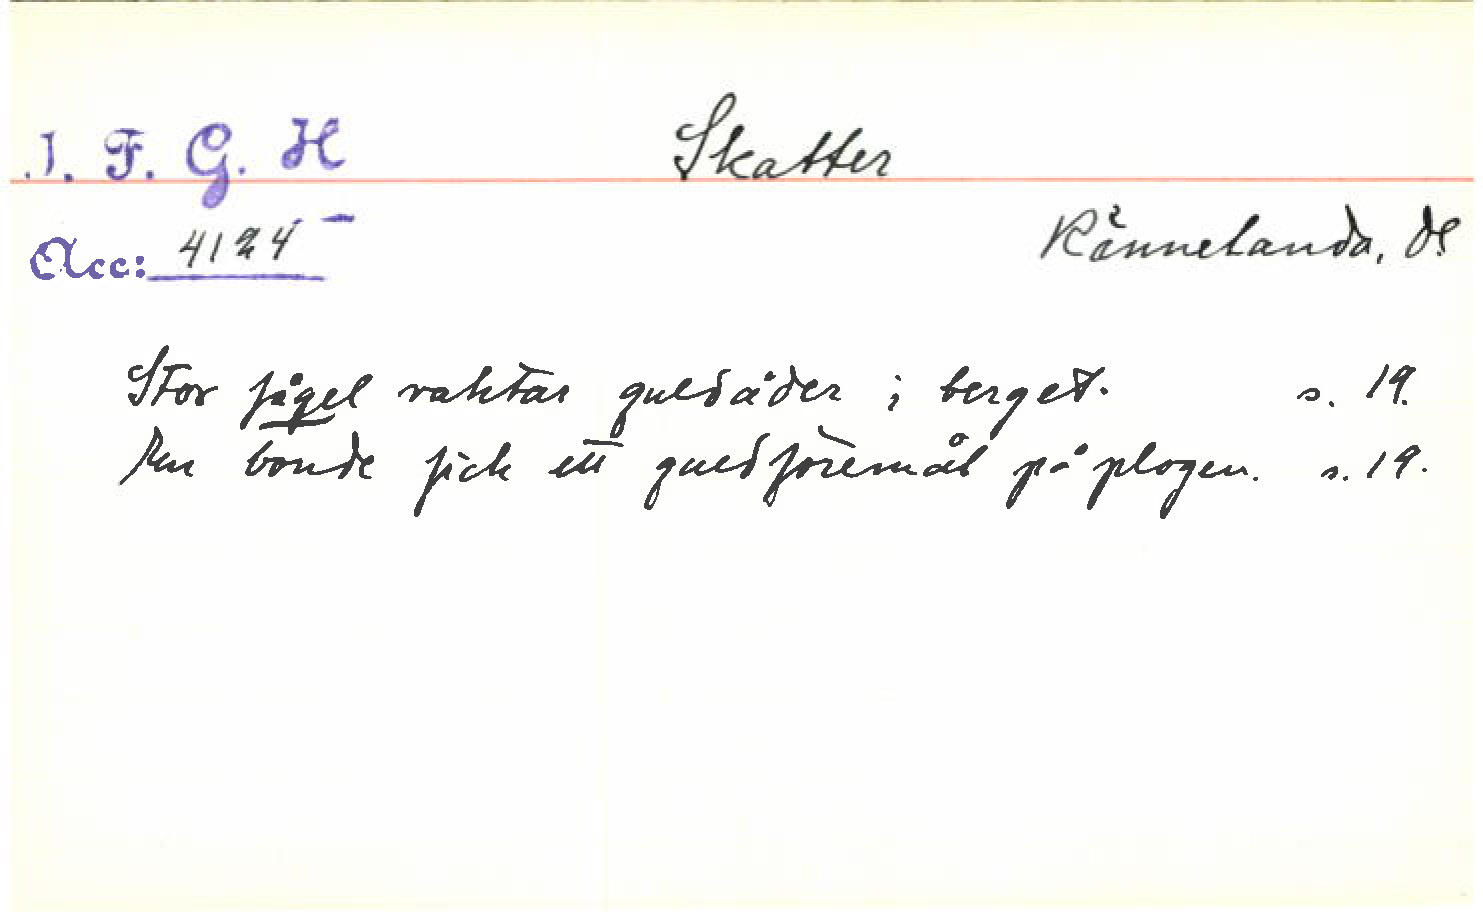 I. F. G. H
Skatter
Acc: 4124
Rännelanda, Dl
Stor fågel vaktar guldåder i berget. s. 19.
En bonde fick ett guldföremål på plogen. s. 19.